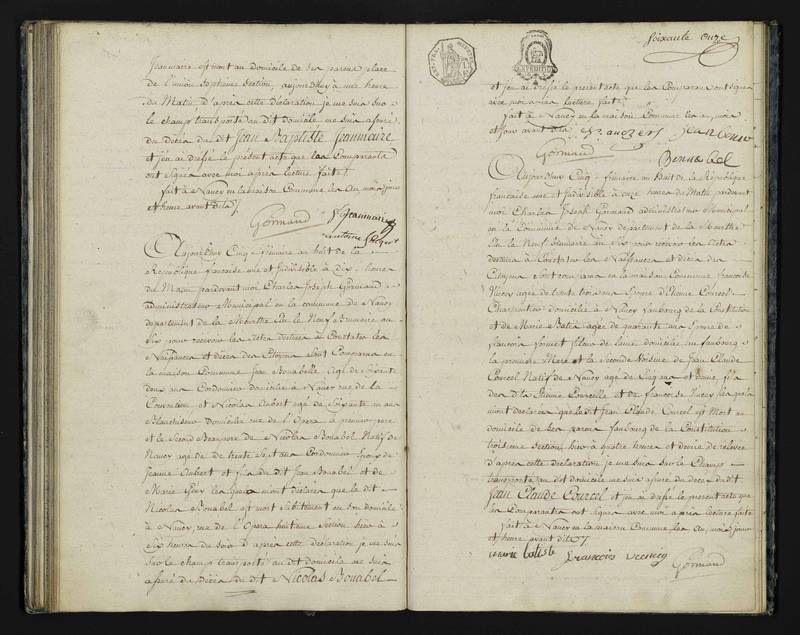 Jeanmaire est mort au domicile de ses parens place
de l'union septieme section, aujourd'huy à une heure
du Matin d'après cette déclaration je me suis sur
le champ transporté au dit domicile me suis assuré
du Décès du dit Jean Baptiste Jeanmaire
et j'en ai dressé le présent acte que les Comparants
ont signés avec moi après lecture faite.
fait à Nancy en la maison Commune les an, mois jour
et heure avant dits
Gormand Jeanmaire
Aujourd'huy Cinq frimaire an huit de la
République française une et Indivisible à dix heures
du Matin pardevant moi Charles Joseph Gormand
administrateur Municipal en la commune de Nancy
departement de la Meurthe Elu le Neuf Brumaire an
six pour recevoir les Actes destinés à Constater les
Naissances et décès des Citoyens sont Comparus en
la maison Commune Jean Bouabelle agé de soixante
douze ans Cordonnier domicilié à Nancy rue de La
Convention et Nicolas Aubert agé de soixante un ans
Blanchisseur Domicilié rue de l'Opera le premier pere
et le second Beaupere de Nicolas Bouabel Natif de
Nancy agé de trente sept ans Cordonnier Epoux de
Jeanne Aubert et fils du dit Jean Bouabel et de
Marie les quels m'ont déclarés que le dit
Nicolas Bouabel est mort subitement en son domicile
à Nancy, rue de l'Opera huitieme section hier à
six heures du soir d'après cette déclaration je me suis
sur le champ transporté au dit domicile me suis
assuré du Décès du dit Nicolas Bouabel
soixante onze
EXPEDITION
et j'en ai dressé le présent acte que les Comparans ont signés
avec moi après lecture faite
fait à Nancy en la maison Commune les an, mois
et jour avant dits
Gormand
Aujourd'huy Cinq frimaire an huit de la République
française une et Indivisible à onze heures du Matin pardevant
moi Charles Joseph Gormand administrateur Municipal
en la Commune de Nancy departement de la Meurthe
Elu le Neuf Brumaire an six pour recevoir les Actes
destinés à Constater les Naissances et décès des
Citoyens sont comparus en la maison Commune francoise
agée de trente trois ans Epouse d'Etienne Courcel
Charpentier domiciliée à Nancy faubourg de la Constitution
et de Marie agée de quarante ans Epouse de
francois fileuse de laine domiciliée au faubourg
la premiere Mere et la seconde Voisine de Jean Claude
Courcel Natif de Nancy agé de Cinq ans et demie, fils
des dits Etienne Courcelle et de francoise les quels
m'ont déclarés que le dit Jean Claude Courcel est Mort au
domicile de ses parens faubourg de la Constitution
troisieme section, hier à quatre heures et demie de relevée
d'après cette déclaration je me suis sur le Champ
transporté au dit domicile me suis assuré du décès du dit
Jean Claude Courcel et j'en ai dressé le présent acte que
les Comparants ont signés avec moi après lecture faite
fait à Nancy en la maison Commune les an, mois jour
et heure avant dits
francois Gormand